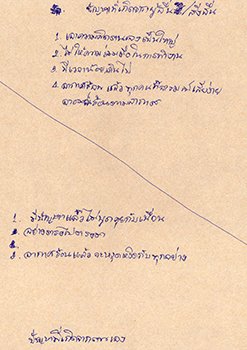 ปัญหาที่เกิดจากผู้อื่น/สิ่งอื่น
1. เอาความคิดตนเองเป็นใหญ่
2. ไม่ให้ความร่วมมือในการทำงาน
3. มีเวลาน้อยเกินไป
4. อากาศร้อน แล้วทุกคนก็อารมณ์เสียง่าย
ตามสภาพอากาศ
1. มีปัญหาแล้วไม่พูดคุยกับเพื่อน
2.
3. อากาศร้อนแล้วจะหงุดหงิดกับทุกอย่าง
ปัญหาที่เกิดจากตนเอง